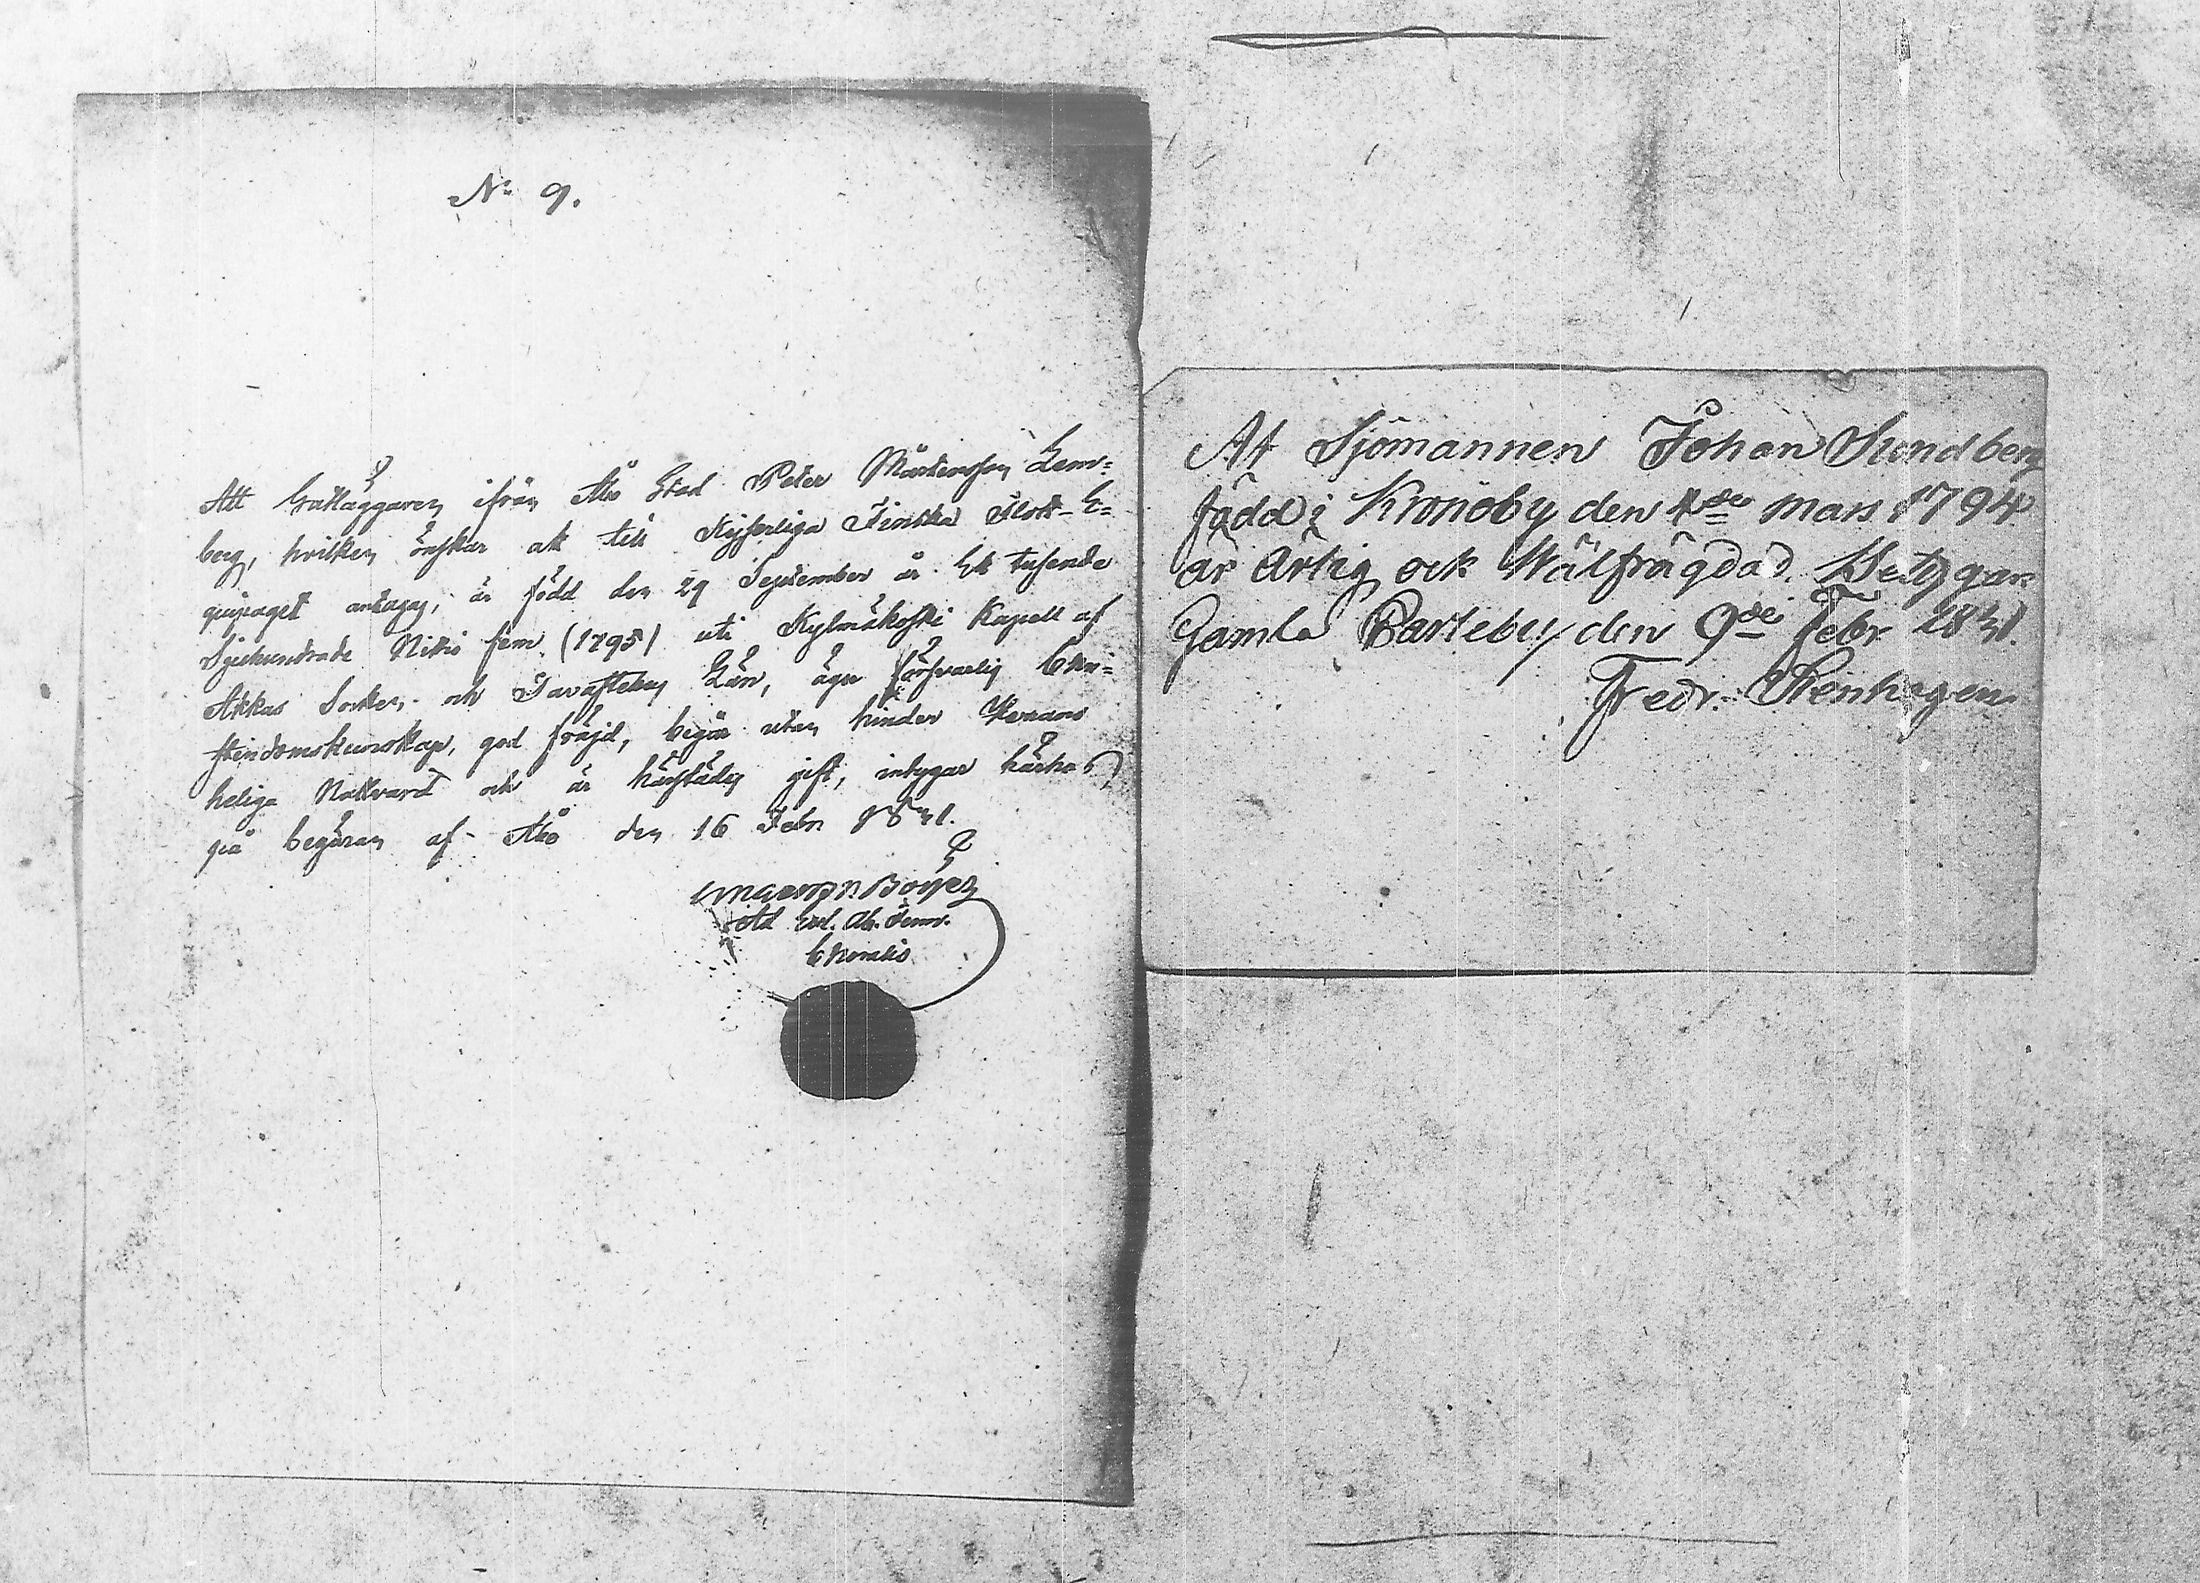 No 9.
Att Gatläggaren ifrån Åbo Stad Peter Mårtensson Lem=
berg, hvilken önskar att till Kejserliga Finska Slott-E=
quipaget antagas, är född den 29 September år Ett tusende
Sjuhundrade Nitio fem (1795) uti Kylmäkoski Kapell af
Akkas Socken och Tavastehus Län, äger försvarlig Chri=
stendomskunskap, god fräjd, begår utan hinder Herrans
heliga Nattvard och är härstädes gift, intygar härhos
på begäran af Åbo den 16 Febr 1831.
Ad
At Sjömannen Johan Sundberg
född i Kronoby den 4de mars 1794
är Ärlig ock Wälfrägdad. Betygar
Gamla Carleby den 9de Febr 1831.
Fredr. Stenhagen